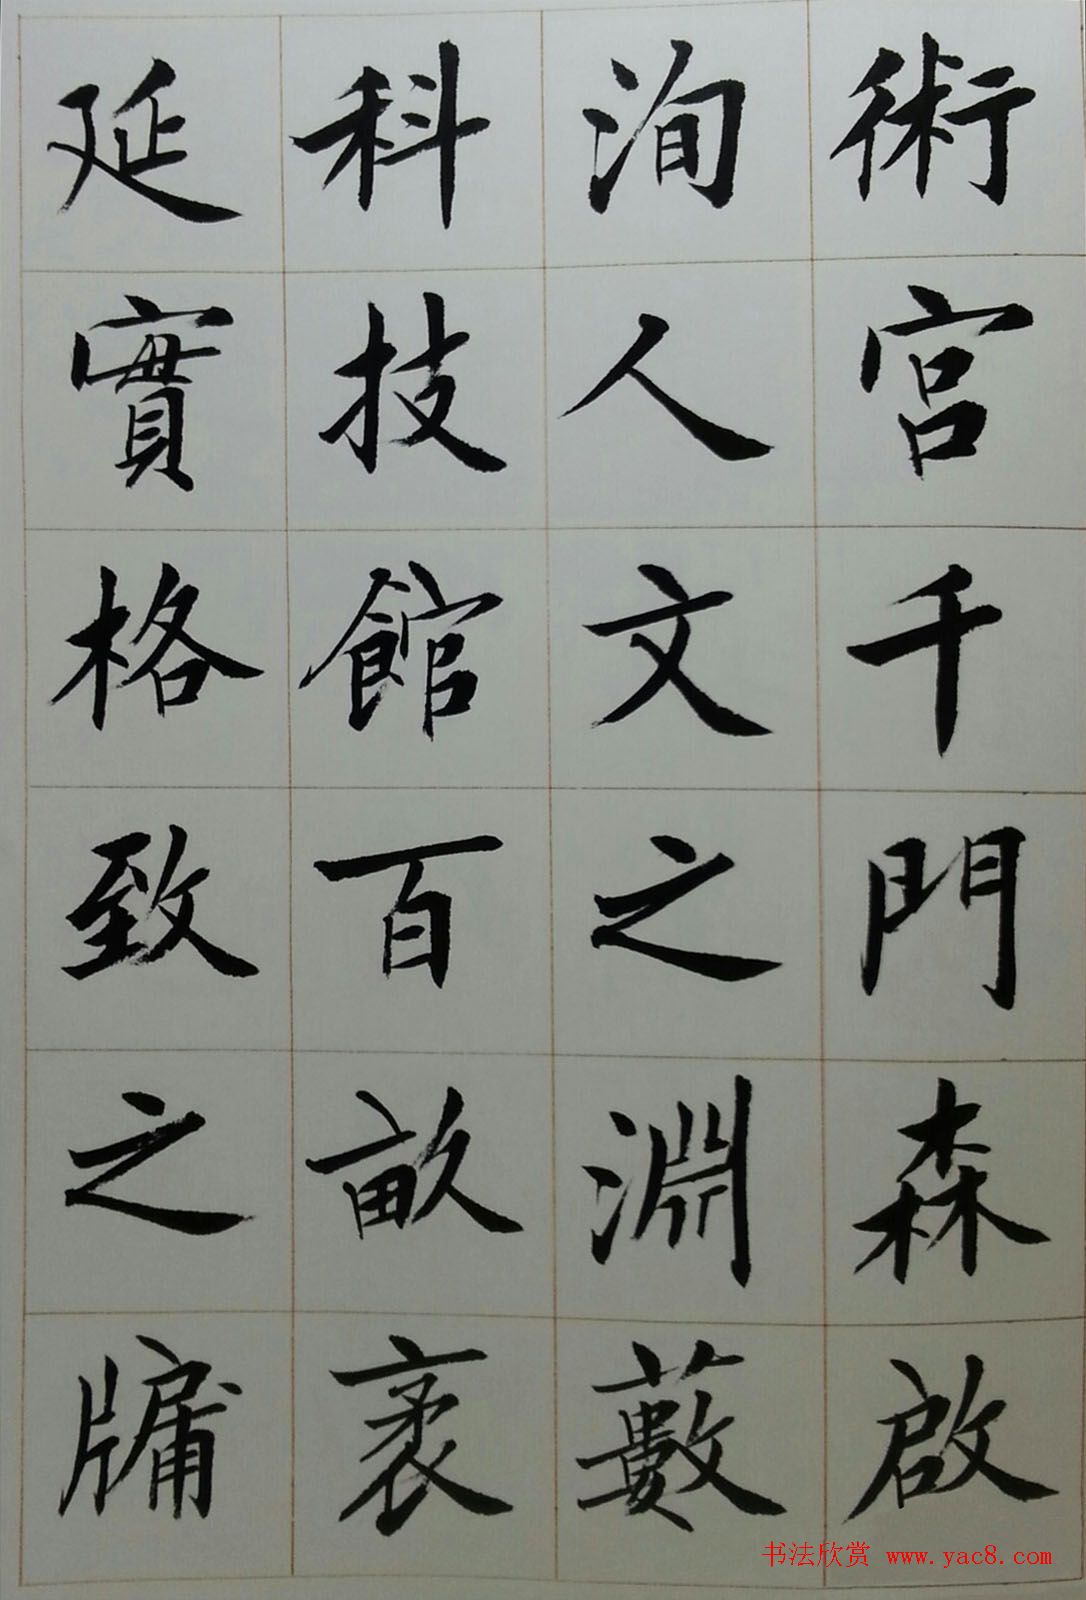 術宮千門森啟
洵人文之淵藪
科技館百畝袤
延實格致之牖
书法欣赏 www.yac8.com